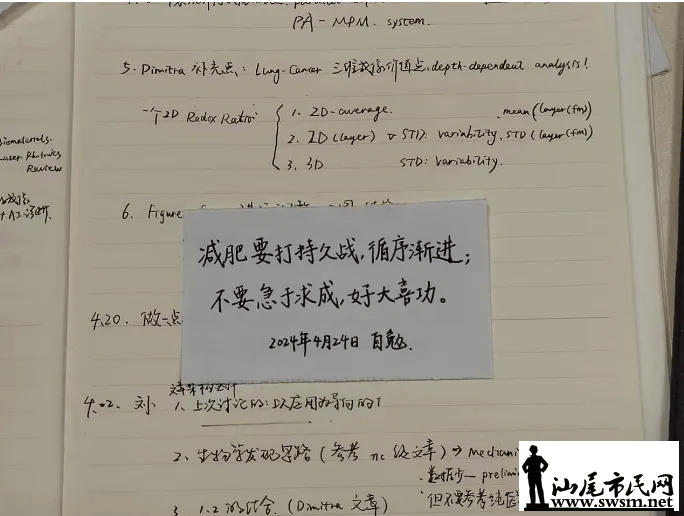 PA-MPM. system.
5. Dimitra 补充点: Lung-Cancer 三维成像价值点, depth-dependent analysis!
一个2D Redox Ratio:
1. 2D-average. mean(layer(fm))
2. 2D(layer) STD: variability. STD(layer(fm))
3. 3D STD: variability.
Review
6. Figure
减肥要打持久战,循序渐进;
不要急于求成,好大喜功。
2024年4月24日 自勉.
4.20. 做一点
刘: 1. 上次讨论的: 以应用为导向的
2. 生物学发现思路 (参考 nc 级文章) → Mechani
数据少— prelimi
但不要参考纯
3. 1.2 的结合. (Dimitra 文章)
汕尾市民网
www.swsm.net